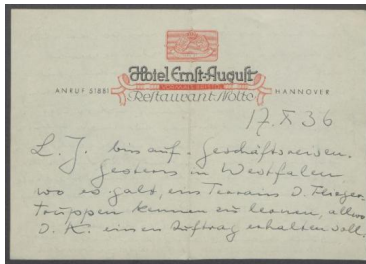 Hotel Ernst-August
VORMALS KNYPS.
ANRUF 51881 Restaurant Nolte HANNOVER
17. X 36
L. J. bin auf Geschäftsreisen.
Gestern in Westfalen
wo es galt, ein Terrain d. Flieger-
truppen kennen zu lernen, allwo
J. K. einen Auftrag erhalten soll.